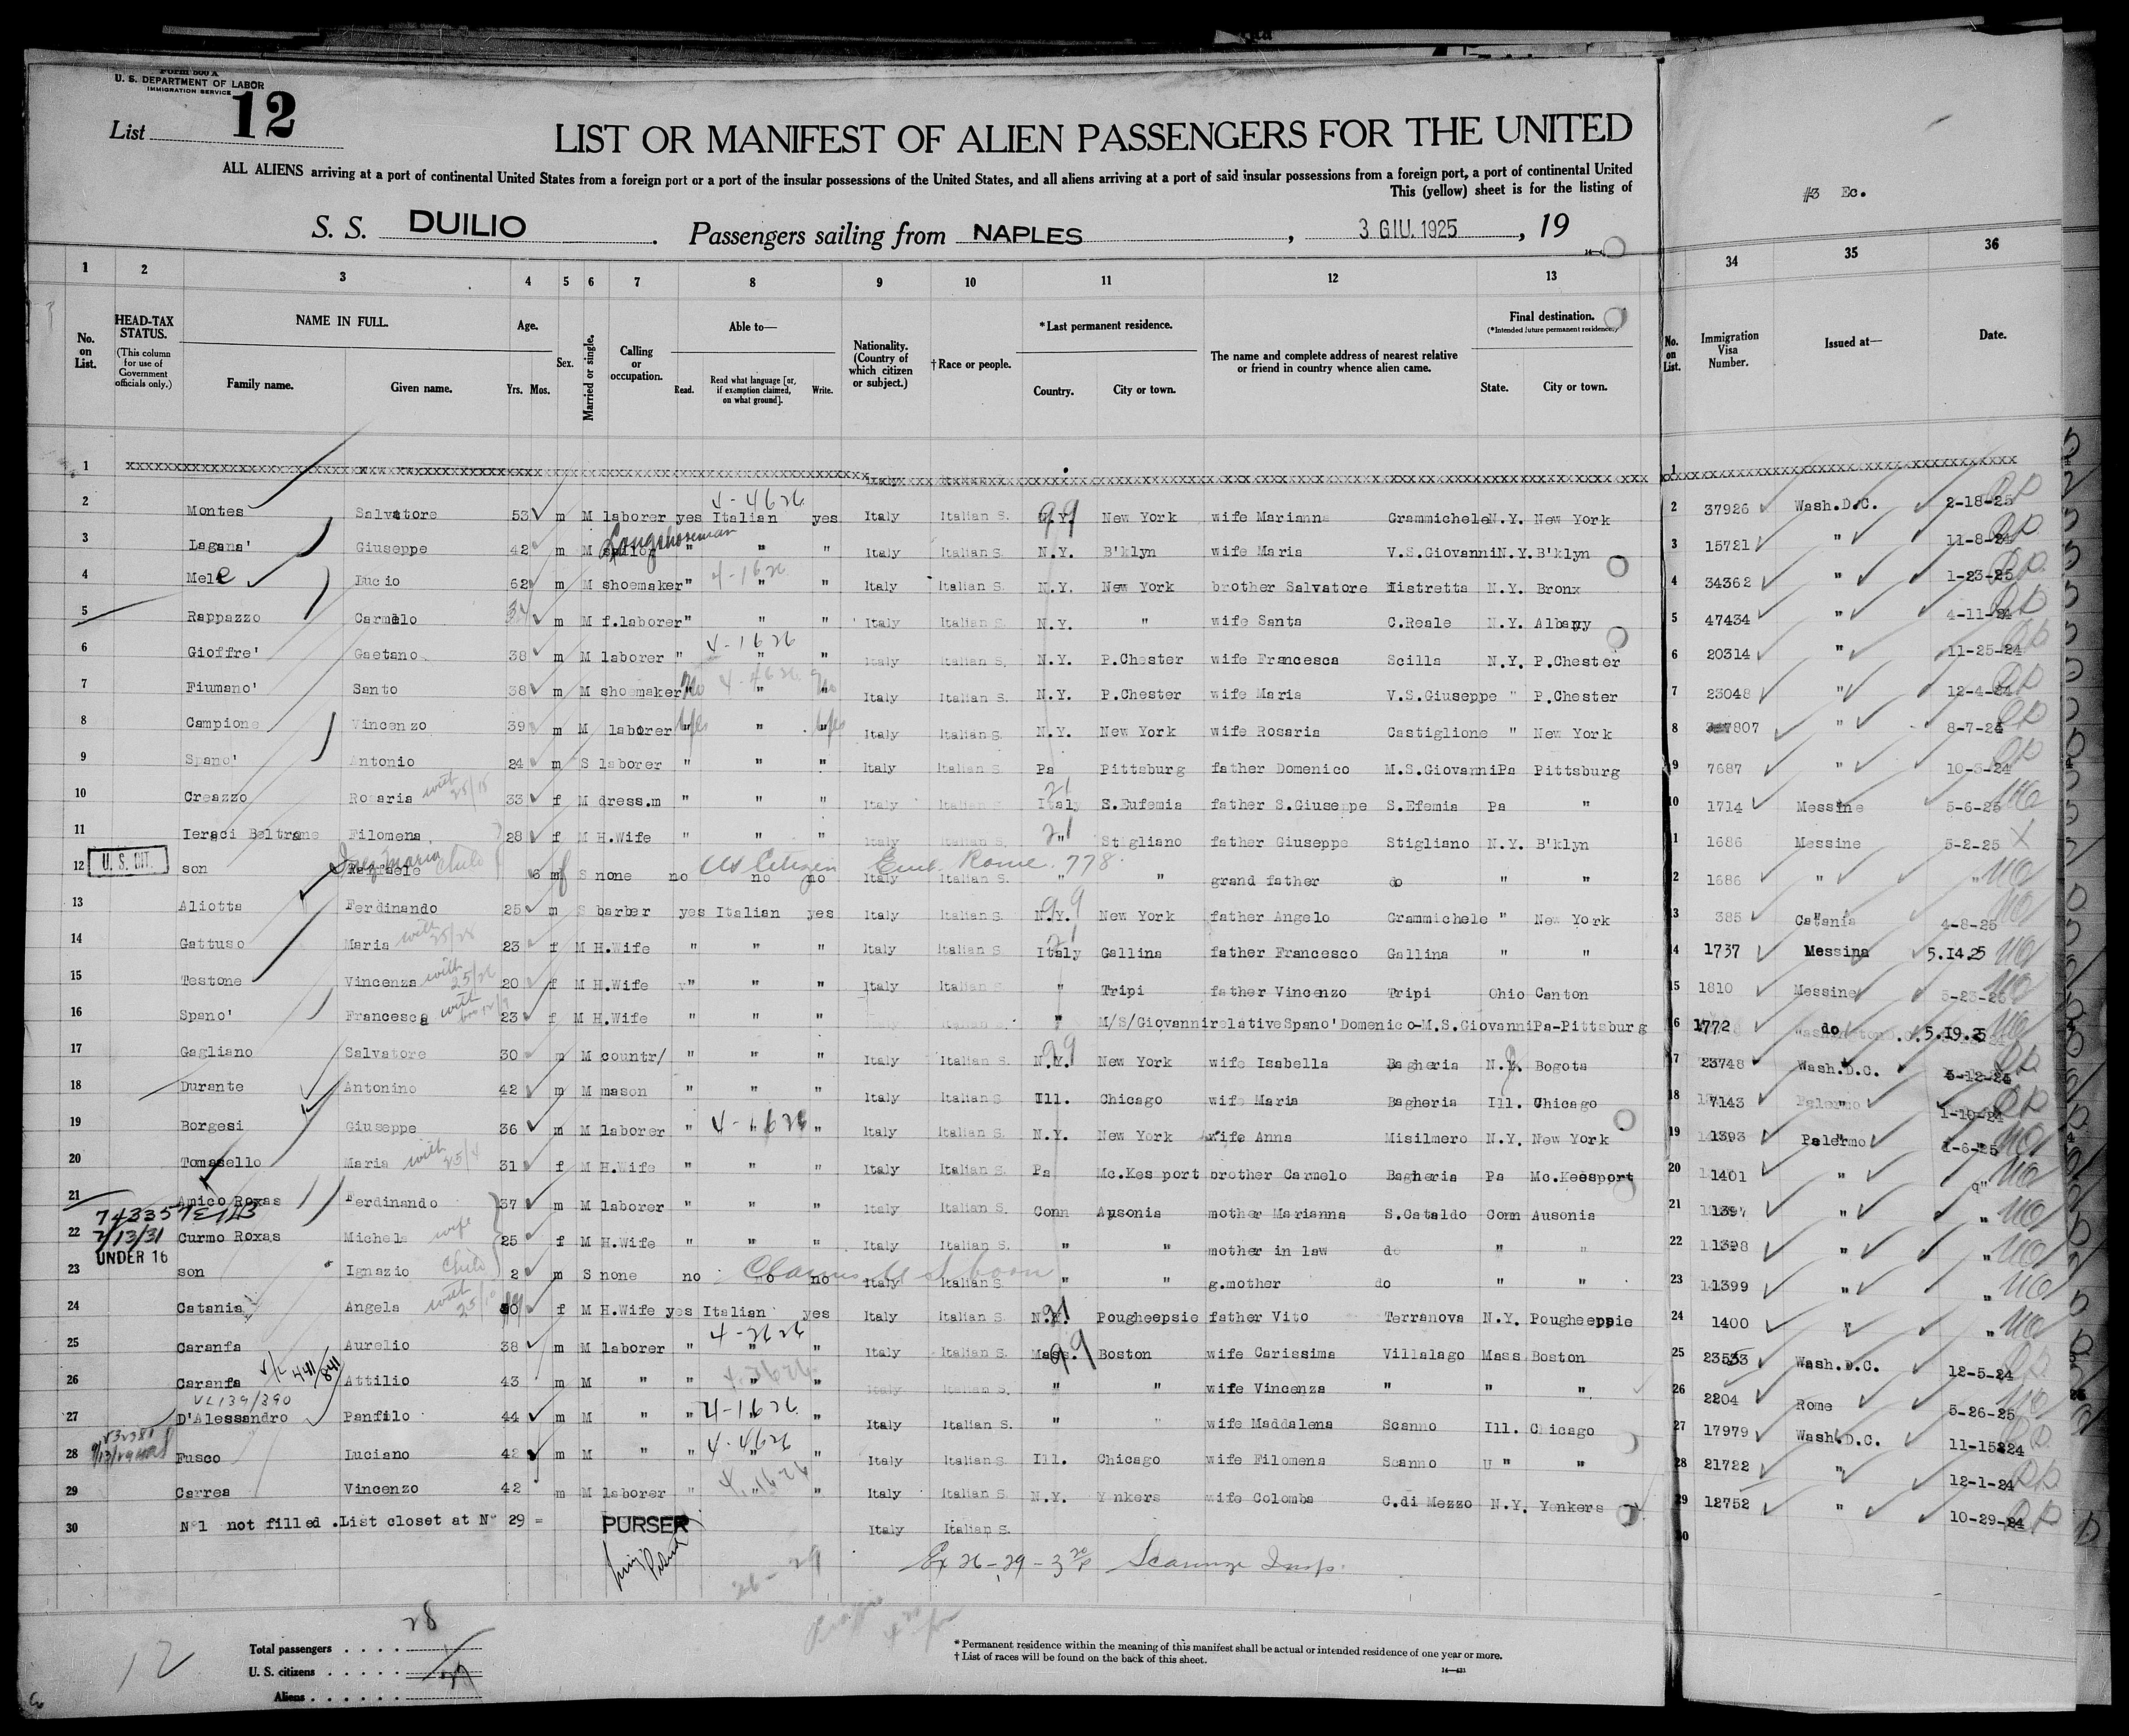 Form 500 A
U. S. DEPARTMENT OF LABOR
IMMIGRATION SERVICE
List 12
LIST OR MANIFEST OF ALIEN PASSENGERS FOR THE UNITED
ALL ALIENS arriving at a port of continental United States from a foreign port or a port of the insular possessions of the United States, and all aliens arriving at a port of said insular possessions from a foreign port, a port of continental United
This (yellow) sheet is for the listing of
#3 Ec.
S. S. DUILIO . Passengers sailing from NAPLES , 3 GIU. 1925 , 19
1 2 3 4 5 6 7 8 9 10 11 12 13 34 35 36
No. on List.
HEAD-TAX STATUS.
(This column for use of Government officials only.)
NAME IN FULL.
Family name. Given name.
Age.
Yrs. Mos.
Sex.
Married or single.
Calling or occupation.
Able to—
Read. Read what language [or, if exemption claimed, on what ground]. Write.
Nationality. (Country of which citizen or subject.)
†Race or people.
*Last permanent residence.
Country. City or town.
The name and complete address of nearest relative or friend in country whence alien came.
Final destination.
(*Intended future permanent residence.)
State. City or town.
No. on List.
Immigration Visa Number.
Issued at—
Date.
1 1
4-4626
2 Montes Salvatore 53 m M laborer yes Italian yes Italy Italian S. N.Y. New York wife Marianna Grammichele N.Y. New York 2 37926 Wash.D.C. 2-18-25
Longshoreman
3 Lagana' Giuseppe 42 m M " " " Italy Italian S. N.Y. B'klyn wife Maria V.S.Giovanni N.Y. B'klyn 3 15721 " 11-8-24
4-1626
4 Mele Lucio 62 m M shoemaker " " " Italy Italian S. N.Y. New York brother Salvatore Mistretta N.Y. Bronx 4 34362 " 1-23-25
5 Rappazzo Carmelo 34 m M f.laborer " " " Italy Italian S. N.Y. " wife Santa C.Reale N.Y. Albany 5 47434 " 4-11-24
4-1626
6 Gioffre' Gaetano 38 m M laborer " " " Italy Italian S. N.Y. P.Chester wife Francesca Scilla N.Y. P.Chester 6 20314 " 11-25-24
4-4626
7 Fiumano' Santo 38 m M shoemaker no " no Italy Italian S. N.Y. P.Chester wife Maria V.S.Giuseppe " P.Chester 7 23048 " 12-4-24
8 Campione Vincenzo 39 m M laborer yes " yes Italy Italian S. N.Y. New York wife Rosaria Castiglione " New York 8 807 " 8-7-24
9 Spano' Antonio 24 m S laborer " " " Italy Italian S. Pa Pittsburg father Domenico M.S.Giovanni Pa Pittsburg 9 7687 " 10-3-24
10 Creazzo Rosaria with 25/18 33 f M dress.m " " " Italy Italian S. Italy S.Eufemia father S.Giuseppe S.Efemia Pa " 10 1714 Messine 5-6-25
11 Ieraci Beltrane Filomena 28 f M H.Wife " " " Italy Italian S. " Stigliano father Giuseppe Stigliano N.Y. B'klyn 11 1686 Messine 5-2-25
U. S. CIT. Maria Child US Citizen Emb. Rome. 778.
12 son Raffaele 6 f S none no no no Italy Italian S. " " grand father do " " 12 1686 " "
13 Aliotta Ferdinando 25 m S barber yes Italian yes Italy Italian S. N.Y. New York father Angelo Grammichele " New York 13 385 Catania 4-8-25
14 Gattuso Maria with 25/28 23 f M H.Wife " " " Italy Italian S. Italy Gallina father Francesco Gallina " " 14 1737 Messina 5.14.25
15 Testone Vincenza with 25/26 20 f M H.Wife " " " Italy Italian S. " Tripi father Vincenzo Tripi Ohio Canton 15 1810 Messine 5-23-25
16 Spano' Francesca with 23 f M H.Wife " " " " M/S/Giovanni relative Spano' Domenico-M.S.Giovanni Pa-Pittsburg 16 1772 do 5.19.25
17 Gagliano Salvatore 30 m M countr/ " " " Italy Italian S. N.Y. New York wife Isabella Bagheria N.Y. Bogota 17 23748 Wash.D.C. 5-12-24
18 Durante Antonino 42 m M mason " " " Italy Italian S. Ill. Chicago wife Maria Bagheria Ill. Chicago 18 7143 " 1-10-24
4-1626
19 Borgesi Giuseppe 36 m M laborer " " " Italy Italian S. N.Y. New York wife Anna Misilmero N.Y. New York 19 1393 Palermo 1-6-25
20 Tomasello Maria with 25/4 31 f M H.Wife " " " Italy Italian S. Pa Mc.Kes port brother Carmelo Bagheria Pa Mc.Keesport 20 1401 " "
21 Amico Roxas Ferdinando 37 m M laborer " " " Italy Italian S. Conn Ansonia mother Marianna S.Cataldo Conn Ausonia 21 1397 " "
7/13/31
22 Curmo Roxas Michela wife 25 f M H.Wife " " " Italy Italian S. " " mother in law do " " 22 1398 " "
UNDER 16
Claims U S born
23 son Ignazio Child 2 m S none no no no Italy Italian S. " " g.mother do " " 23 1399 " "
24 Catania Angela with 25/10 f M H.Wife yes Italian yes Italy Italian S. N.Y. Pougheepsie father Vito Terranova N.Y. Pougheepsie 24 1400 " "
4-2626
25 Caranfa Aurelio 38 m M laborer " " " Italy Italian S. Mass. Boston wife Carissima Villalago Mass Boston 25 23533 Wash.D.C. 12-5-24
V/L 441/841
26 Caranfa Attilio 43 m M " " " " Italy Italian S. " " wife Vincenza " " " 26 2204 Rome 5-26-25
VL139/390
4-1626
27 D'Alessandro Panfilo 44 m M " " " Italy Italian S. " " wife Maddalena Scanno Ill. Chicago 27 17979 Wash.D.C. 11-15-24
4-4626
28 Fusco Luciano 42 m M " " " " Italy Italian S. Ill. Chicago wife Filomena Scanno U " " 28 21722 " 12-1-24
4-1626
29 Carrea Vincenzo 42 m M laborer " " " Italy Italian S. N.Y. Yonkers wife Colomba C.di Mezzo N.Y. Yonkers 29 12752 " 10-29-24
30 N° 1 not filled .List closet at N° 29 = PURSER Italy Italian S. 30
26-29
Ex 26-29-3
28
Total passengers . . . .
U. S. citizens . . . . . 1
Aliens . . . . . . 27
12
* Permanent residence within the meaning of this manifest shall be actual or intended residence of one year or more.
† List of races will be found on the back of this sheet.